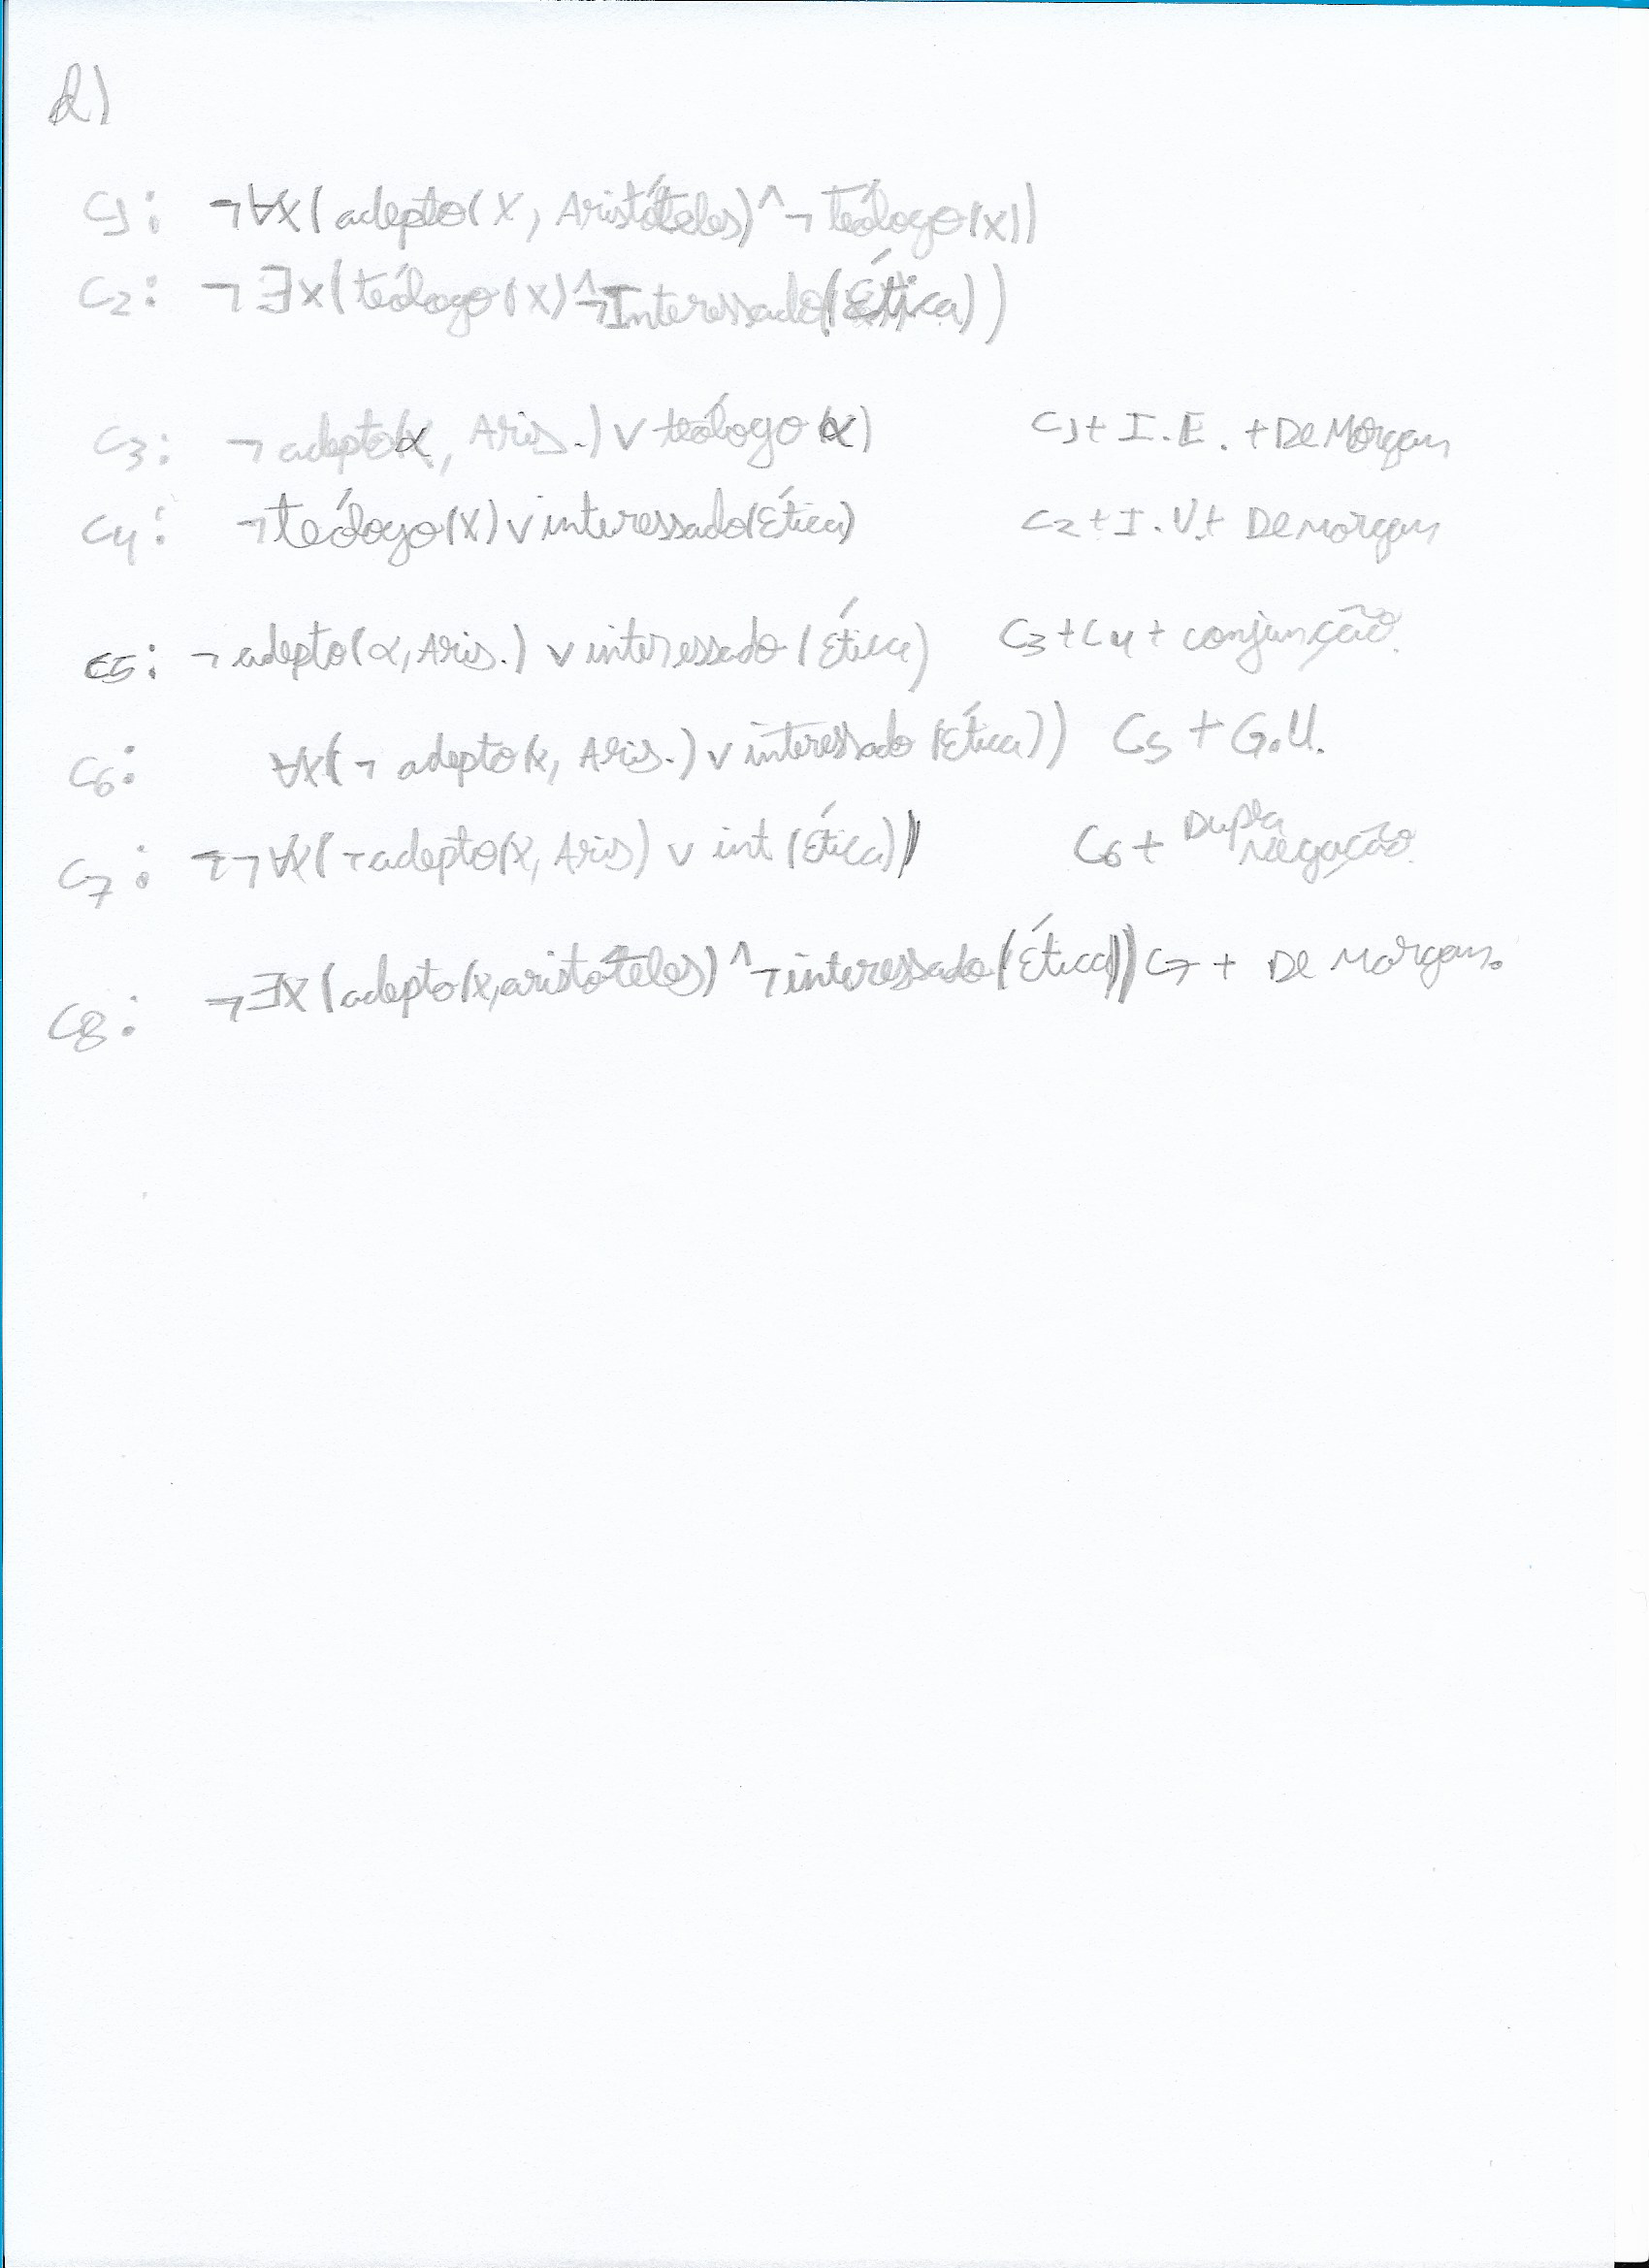 d)
C1: ¬∀x(adepto(x, Aristóteles)^¬teólogo(x))
C2: ¬∃x(teólogo(x)^¬Interessado(Ética))
C3: ¬adepto(α, Aris.) v teólogo(α) C1+ I.E. + De Morgan
C4: ¬teólogo(x) v interessado(Ética) C2+I.U.+ De Morgan
C5: ¬adepto(α, Aris.) v interessado(Ética) C3+C4+ conjunção.
C6: ∀x(¬adepto(x, Aris.) v interessado(Ética)) C5 + G.U.
C7: ¬¬∀x(¬adepto(x, Aris) v int(Ética)) C6+ Dupla Negação.
C8: ¬∃x(adepto(x,aristóteles)^¬interessado(Ética)) C7 + De Morgan.